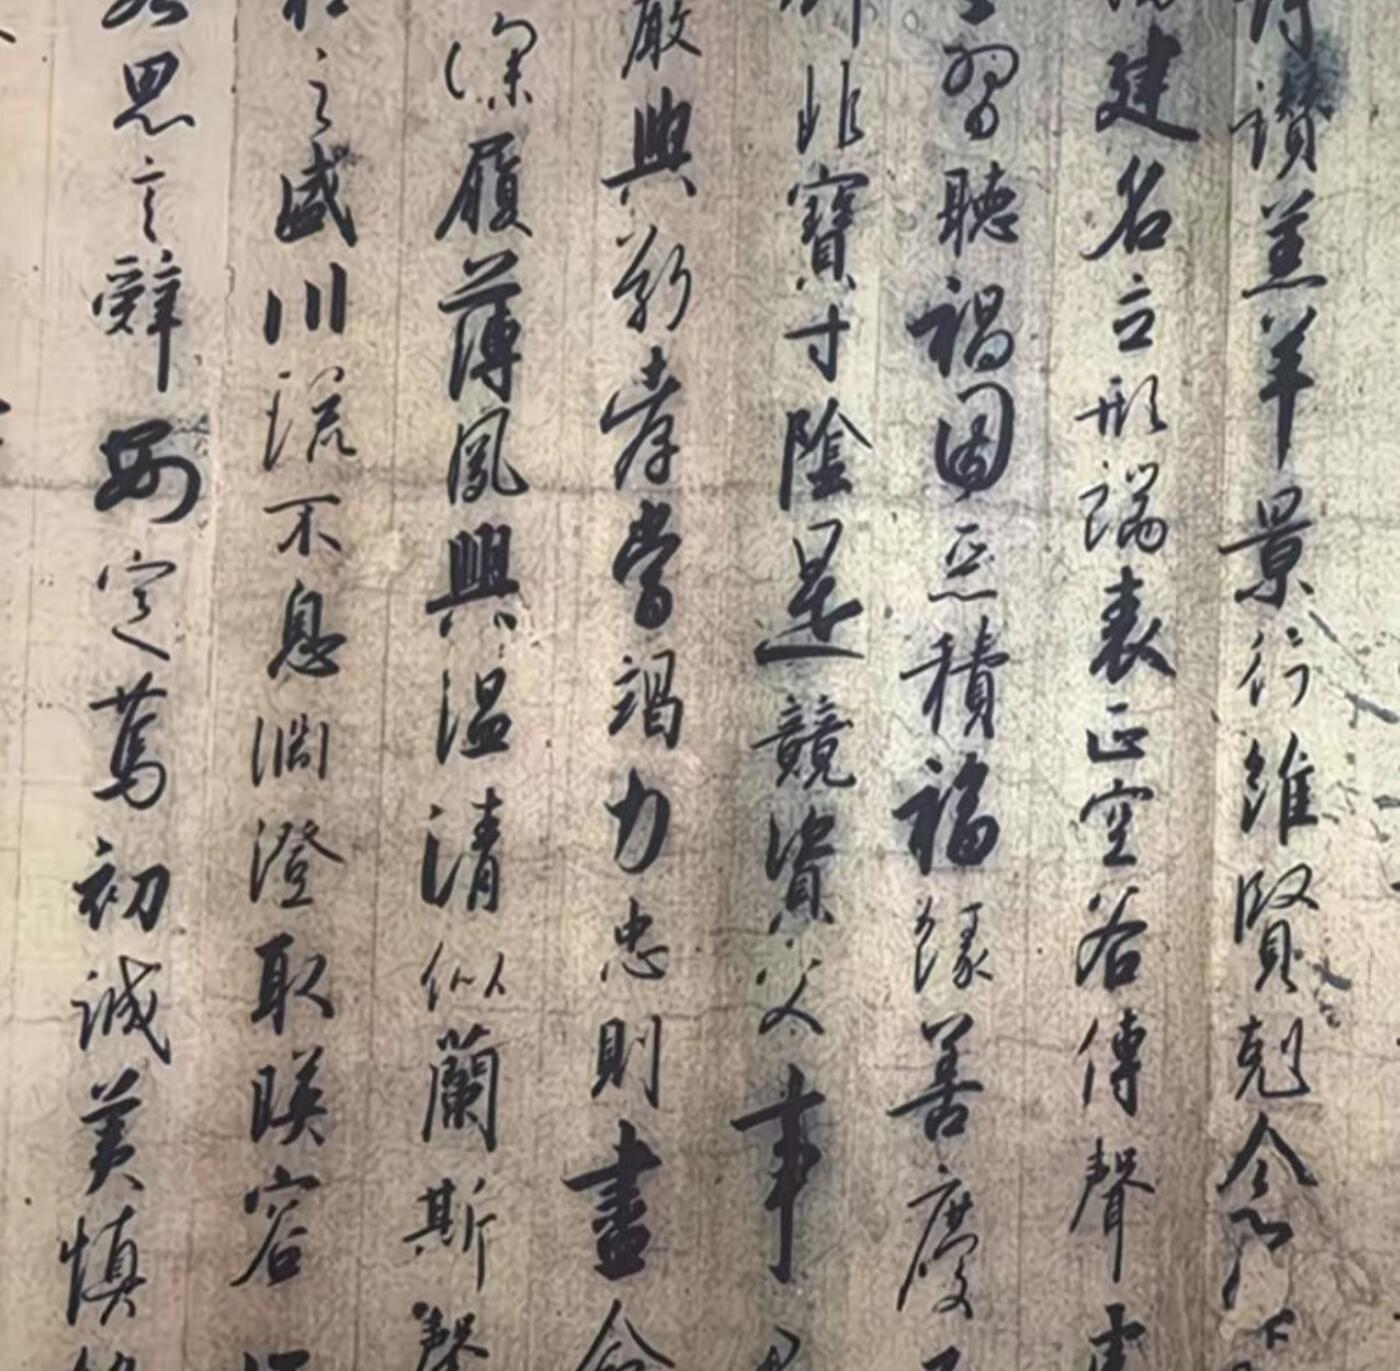 詩讚羔羊景行維賢剋念
建名立形端表正空谷傳聲
習聽禍因惡積福緣善慶
非寶寸陰是競資父事
嚴與敬孝當竭力忠則盡命
深履薄夙興溫清似蘭斯馨
之盛川流不息淵澄取暎容
思言辭安定篤初誠美慎